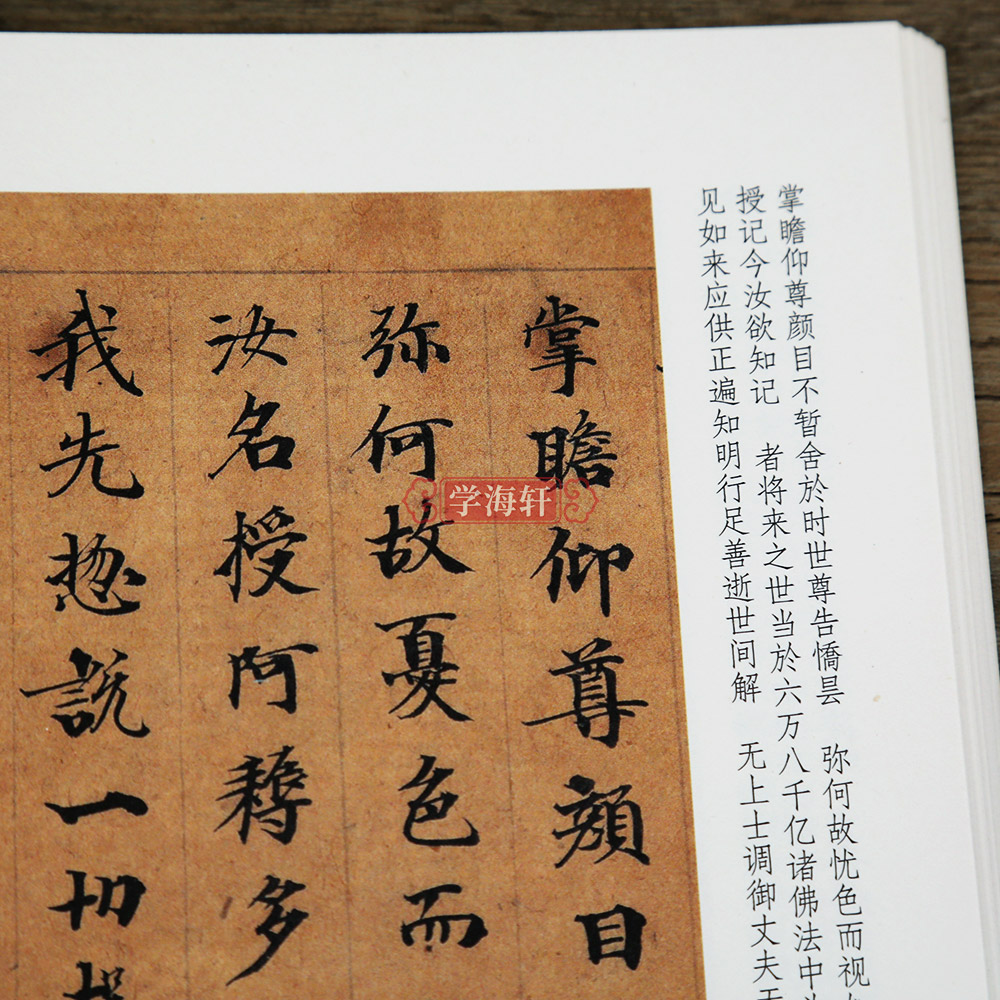 掌瞻仰尊颜目不暂舍於时世尊告憍昙 弥何故忧色而视
授记今汝欲知记 者将来之世当於六万八千亿诸佛法中
见如来应供正遍知明行足善逝世间解 无上士调御丈夫
掌瞻仰尊顔目
弥何故憂色而
汝名授阿耨多
我先惣説一切
学海轩